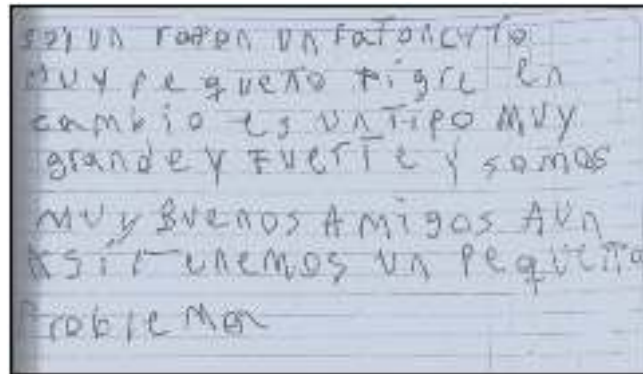 soy un raton un ratoncyto
muy pequeño tigre en
cambio es un tipo muy
grande y fuerte y somos
muy buenos amigos aun
asi tenemos un pequeño
problemon